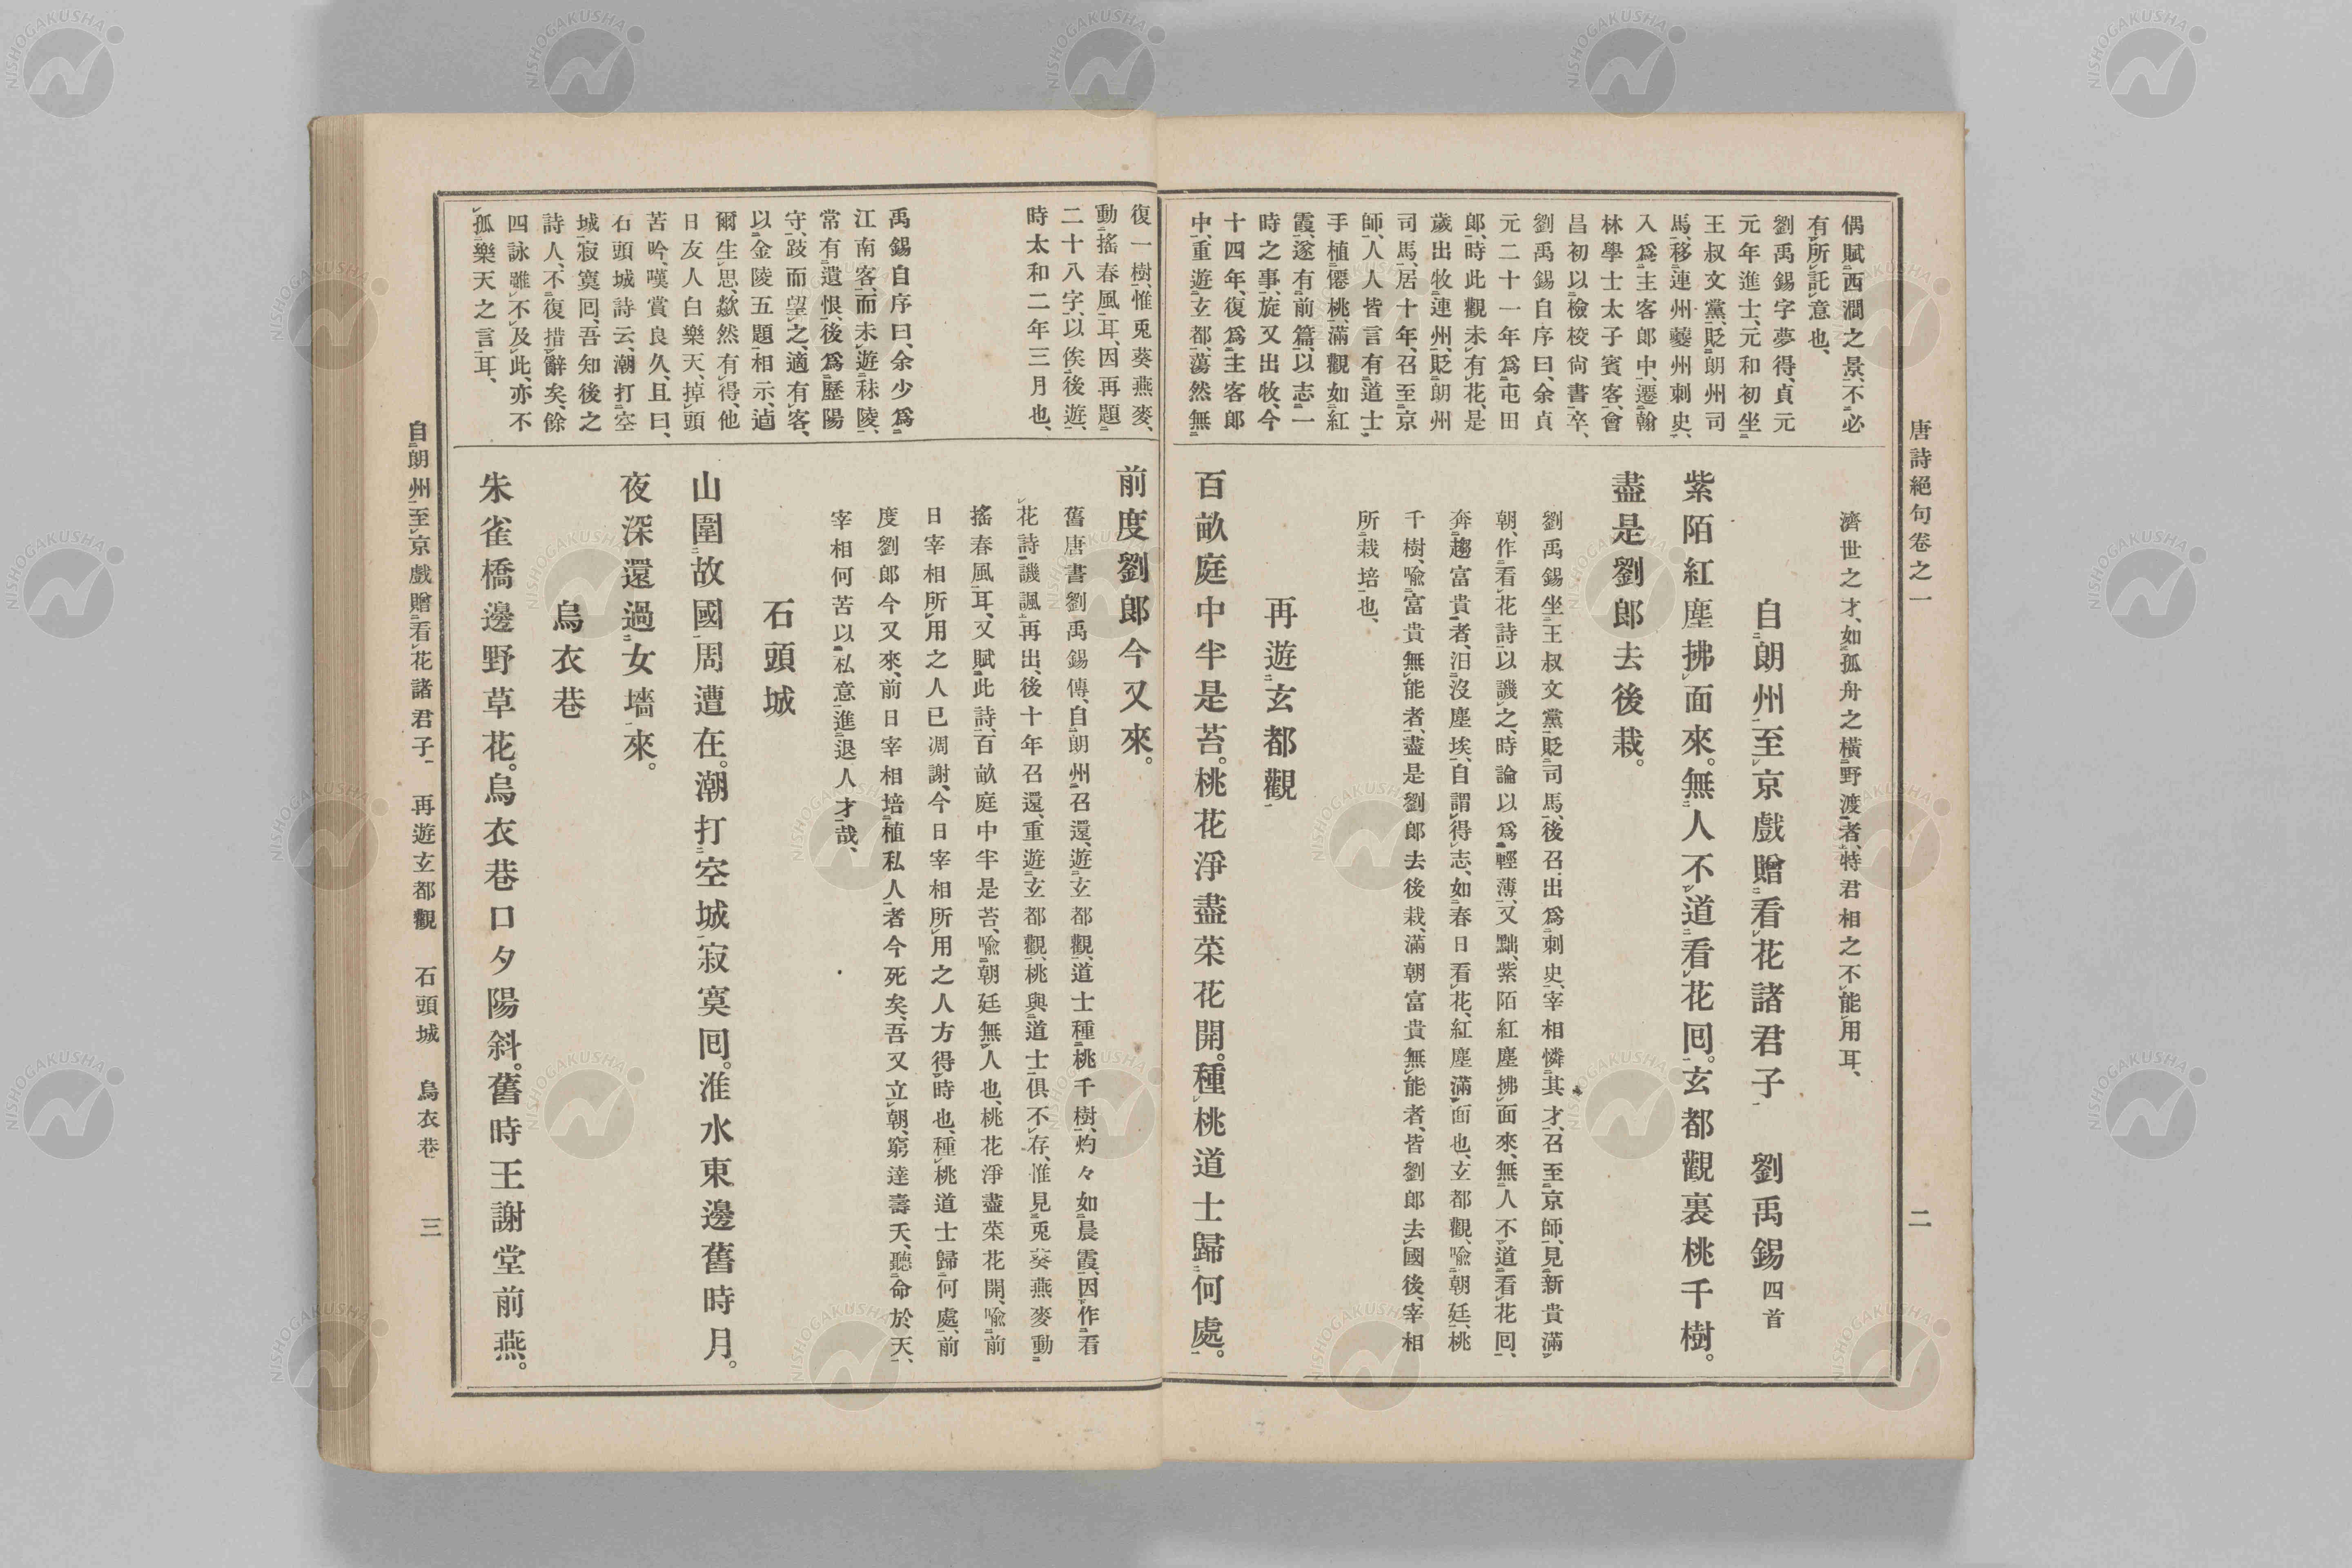 唐詩絕句卷之一
二
偶賦西澗之景、不必
有所託意也、
劉禹錫字夢得、貞元
元年進士、元和初坐
王叔文黨、貶朗州司
馬、移連州夔州刺史、
入爲主客郎中、遷翰
林學士太子賓客、會
昌初以檢校尙書卒、
劉禹錫自序曰、余貞
元二十一年爲屯田
郎、時此觀未有花、是
歲出牧連州、貶朗州
司馬、居十年、召至京
師、人人皆言有道士
手植僊桃、滿觀如紅
霞、遂有前篇、以志一
時之事、旋又出牧、今
十四年、復爲主客郎
中、重遊玄都、蕩然無
濟世之才、如孤舟之橫野渡者、特君相之不能用耳、
自朗州至京戲贈看花諸君子 劉禹錫四首
紫陌紅塵拂面來。無人不道看花囘。玄都觀裏桃千樹。
盡是劉郎去後栽。
劉禹錫坐王叔文黨貶司馬、後召出爲刺史、宰相憐其才、召至京師、見新貴滿
朝、作看花詩以譏之、時論以爲輕薄、又黜、紫陌紅塵拂面來、無人不道看花囘、
奔趨富貴者、汨沒塵埃、自謂得志、如春日看花、紅塵滿面也、玄都觀、喩朝廷、桃
千樹、喩富貴無能者、盡是劉郎去後栽、滿朝富貴無能者、皆劉郎去國後、宰相
所栽培也、
再遊玄都觀
百畝庭中半是苔。桃花淨盡菜花開。種桃道士歸何處。
復一樹、惟兎葵燕麥、
動搖春風耳、因再題
二十八字、以俟後遊、
時太和二年三月也、
禹錫自序曰、余少爲
江南客、而未遊秣陵、
常有遺恨、後爲歷陽
守、跂而望之、適有客、
以金陵五題相示、逌
爾生思、歘然有得、他
日友人白樂天、掉頭
苦吟、嘆賞良久、且曰、
石頭城詩云、潮打空
城寂寞囘、吾知後之
詩人、不復措辭矣、餘
四詠雖不及此、亦不
孤樂天之言耳、
前度劉郎今又來。
舊唐書劉禹錫傳、自朗州召還、遊玄都觀、道士種桃千樹、灼々如晨霞、因作看
花詩譏諷、再出、後十年召還、重遊玄都觀、桃與道士俱不存、惟見兎葵燕麥動
搖春風耳、又賦此詩、百畝庭中半是苔、喩朝廷無人也、桃花淨盡菜花開、喩前
日宰相所用之人已凋謝、今日宰相所用之人方得時也、種桃道士歸何處、前
度劉郎今又來、前日宰相培植私人者今死矣、吾又立朝、窮達壽夭、聽命於天、
宰相何苦以私意進退人才哉、
石頭城
山圍故國周遭在。潮打空城寂寞囘。淮水東邊舊時月。
夜深還過女墻來。
烏衣巷
朱雀橋邊野草花。烏衣巷口夕陽斜。舊時王謝堂前燕。
自朗州至京戲贈看花諸君子 再遊玄都觀 石頭城 烏衣巷
三